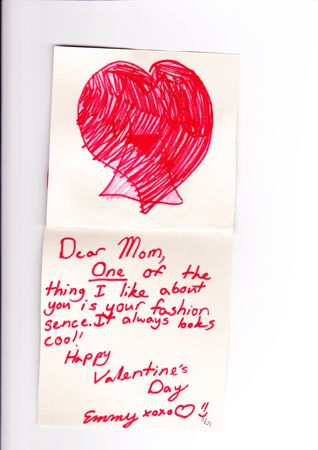 Dear Mom,
One of the
thing I like about
you is your fashion
sence. It always looks
cool!
Happy
Valentine's
Day
Emmy xoxo♡